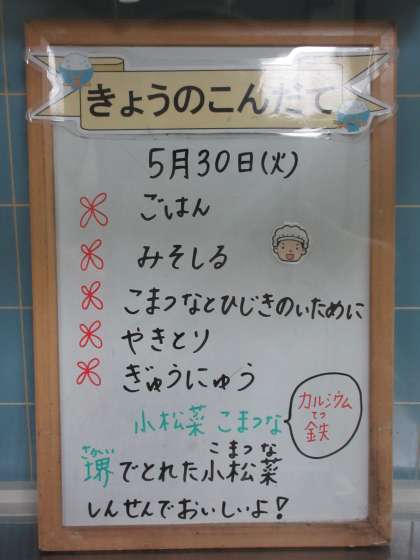 きょうのこんだて
5月30日(火)
ごはん
みそしる
こまつなとひじきのいために
やきとり
ぎゅうにゅう
小松菜 こまつな
カルシウム
てつ
鉄
さかい こまつな
堺でとれた小松菜
しんせんでおいしいよ!